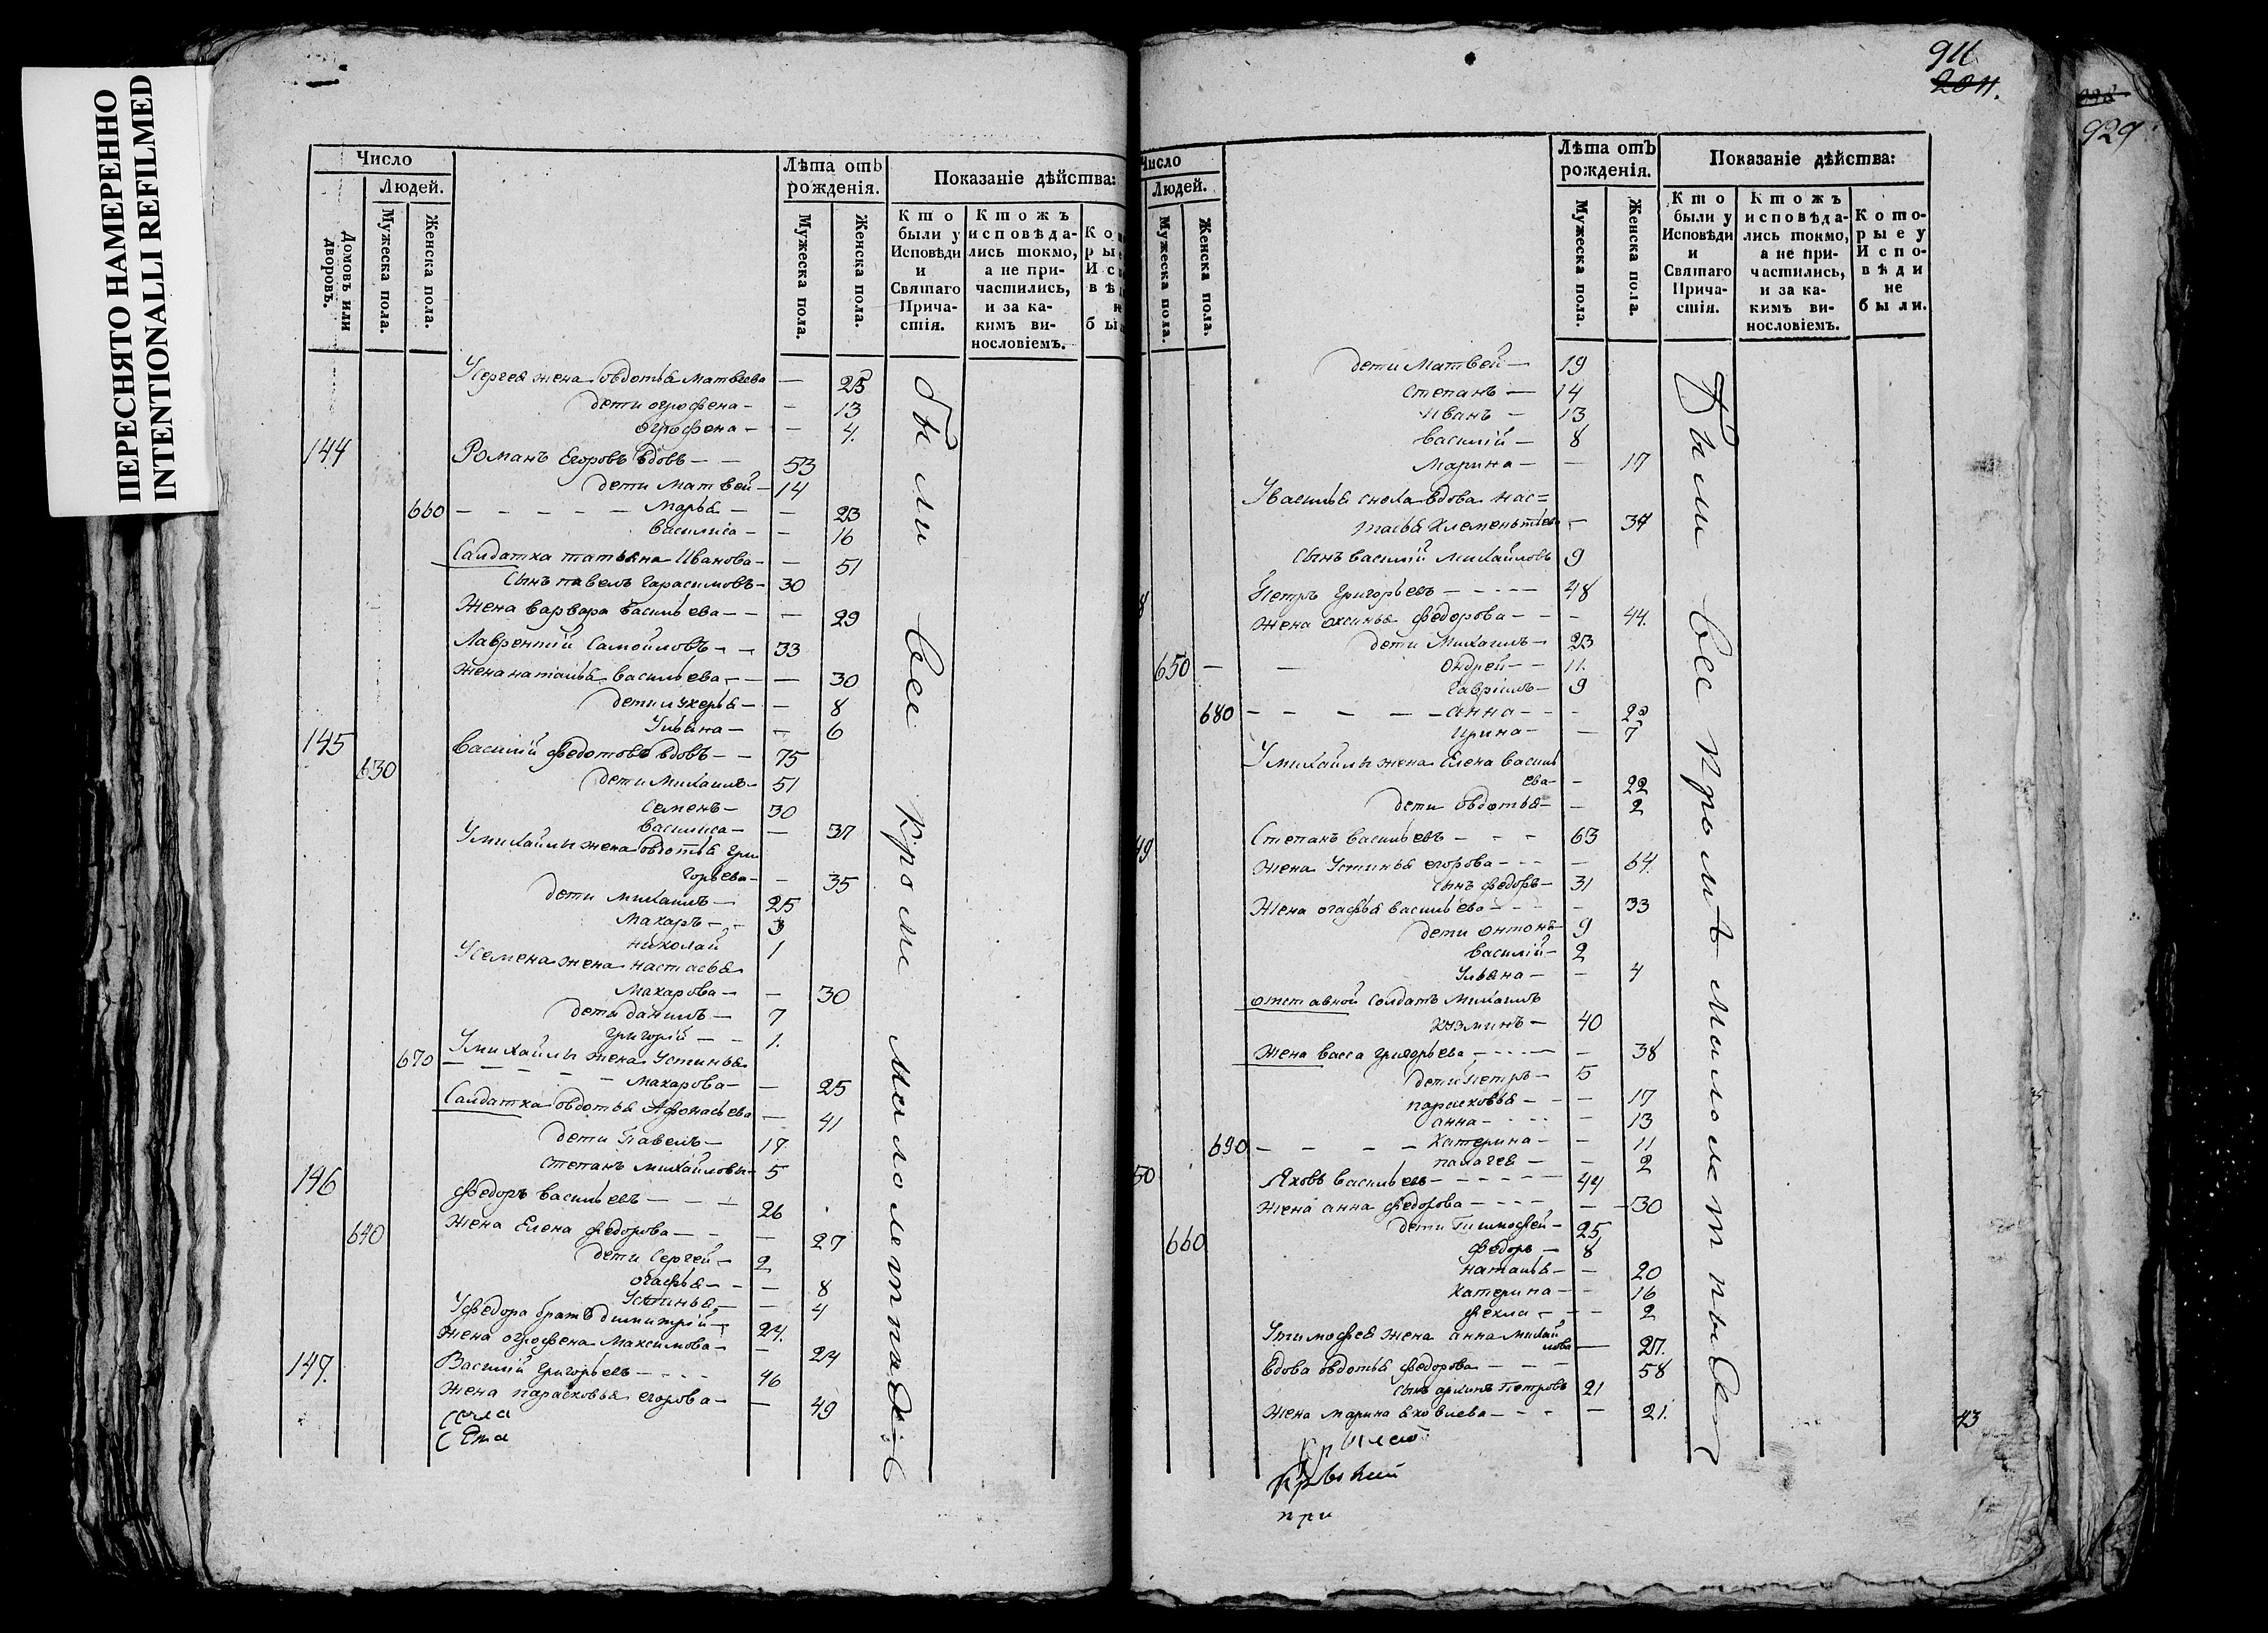 ПЕРЕСНЯТО НАМЕРЕННО
INTENTIONALLI REFILMED
Число
Людей.
Домовъ или дворовъ.
Мужеска пола.
Женска пола.
Лѣта отъ рожденія.
Мужеска пола.
Женска пола.
Показаніе дѣйства:
Кто были у Исповѣди и Святаго Причастія.
Ктожъ исповѣдались токмо, а не причастились, и за какимъ винословіемъ.
У Сергея жена овдотья Матвеева — 25
дети огрофена — — 13
огрофена — — 4.
144 Романъ Егоровъ вдовъ — — 53
дети Матвей — 14
660 — — — — — Марья — — 23
василиса — — 16
Салдатка татьяна Иванова — — 51
Сынъ павелъ Гарасимовъ — 30
Жена варвара васильева — — — 29
Лаврентій Самойловъ — — 33
Жена наталья васильева — — — 30
дети лукерья — — 8
Ульяна — — 6
145 василій федотовъ вдовъ — — 75
630 дети Михаилъ — 51
Семенъ — 30
василиса — — 37
У михайлы жена овдотья Гри
горьева — — 35
дети михаилъ — 25
Макаръ — — 3
николай 1
У Семена жена настасья
Макарова — — 30
дети данилъ — 7
григорій — — 1.
У михайлы жена Устинья
670 — — — — — Макарова — — 25
Салдатка овдотья Афонасьева — 41
дети Павелъ — 17
степанъ михайловы — 5
146 федоръ васильевъ — — — 26
640 Жена Елена федорова — — — 27
дети Сергей — 2
огафья — — — 8
Устинья — — 4
У федора братъ димитрій — 24.
Жена огрофена Максимова — — 24
147. Василій Григорьевъ — — — — 46
Жена парасковья егорова — — 49
были все кроме малолетныхъ
911
2011.
929
Число
Людей.
Мужеска пола.
Женска пола.
Лѣта отъ рожденія.
Мужеска пола.
Женска пола.
Показаніе дѣйства:
Кто были у Исповѣди и Святаго Причастія.
Ктожъ исповѣдались токмо, а не причастились, и за какимъ винословіемъ.
Которые у Исповѣди не были.
дети Матвей — 19
степанъ — 14
Иванъ — 13
василій — 8
Марина — — 17
У василья сноха вдова нас=
тасья Клеменьтьева — 34
Сынъ василій михайловъ 9
Петръ Григорьевъ — — — — 48
Жена оксинья федорова — — — 44.
дети Михаилъ — 23
650 — — ондрей — — 11.
гаврилъ — 9
680 — — — — — анна — — —
ирина — — 7
У михайлы жена Елена василь
ева — — 22
дети овдотья — — 2
49 Степанъ васильевъ — — — 63
Жена Устинья егорова — — — — 64.
сынъ федоръ — 31
Жена огафья васильева — — — — 33
дети онтонъ — 9
василій — 2
Ульяна — — 4
отставной Солдатъ Михаилъ
козминъ — 40
Жена васса григорьева — — — — — 38
дети петръ — 5
парасковья — — — 17
анна — — — — 13
690 — — — — Катерина — — 11
палагея — — 2
50 Яковъ васильевъ — — — — — 44
Жена анна федорова — — — — — 30
дети Тимофей — 25
660 федоръ — 8
наталья — — 20
Катерина — — 16
фекла — — — 2
У тимофея жена анна михай
лова — 27.
вдова овдотья федорова — — — 58
Сынъ архипъ Петровъ 21
Жена марина яковлева — — — — 21.
Были все кромѣ малолетныхъ
43
при